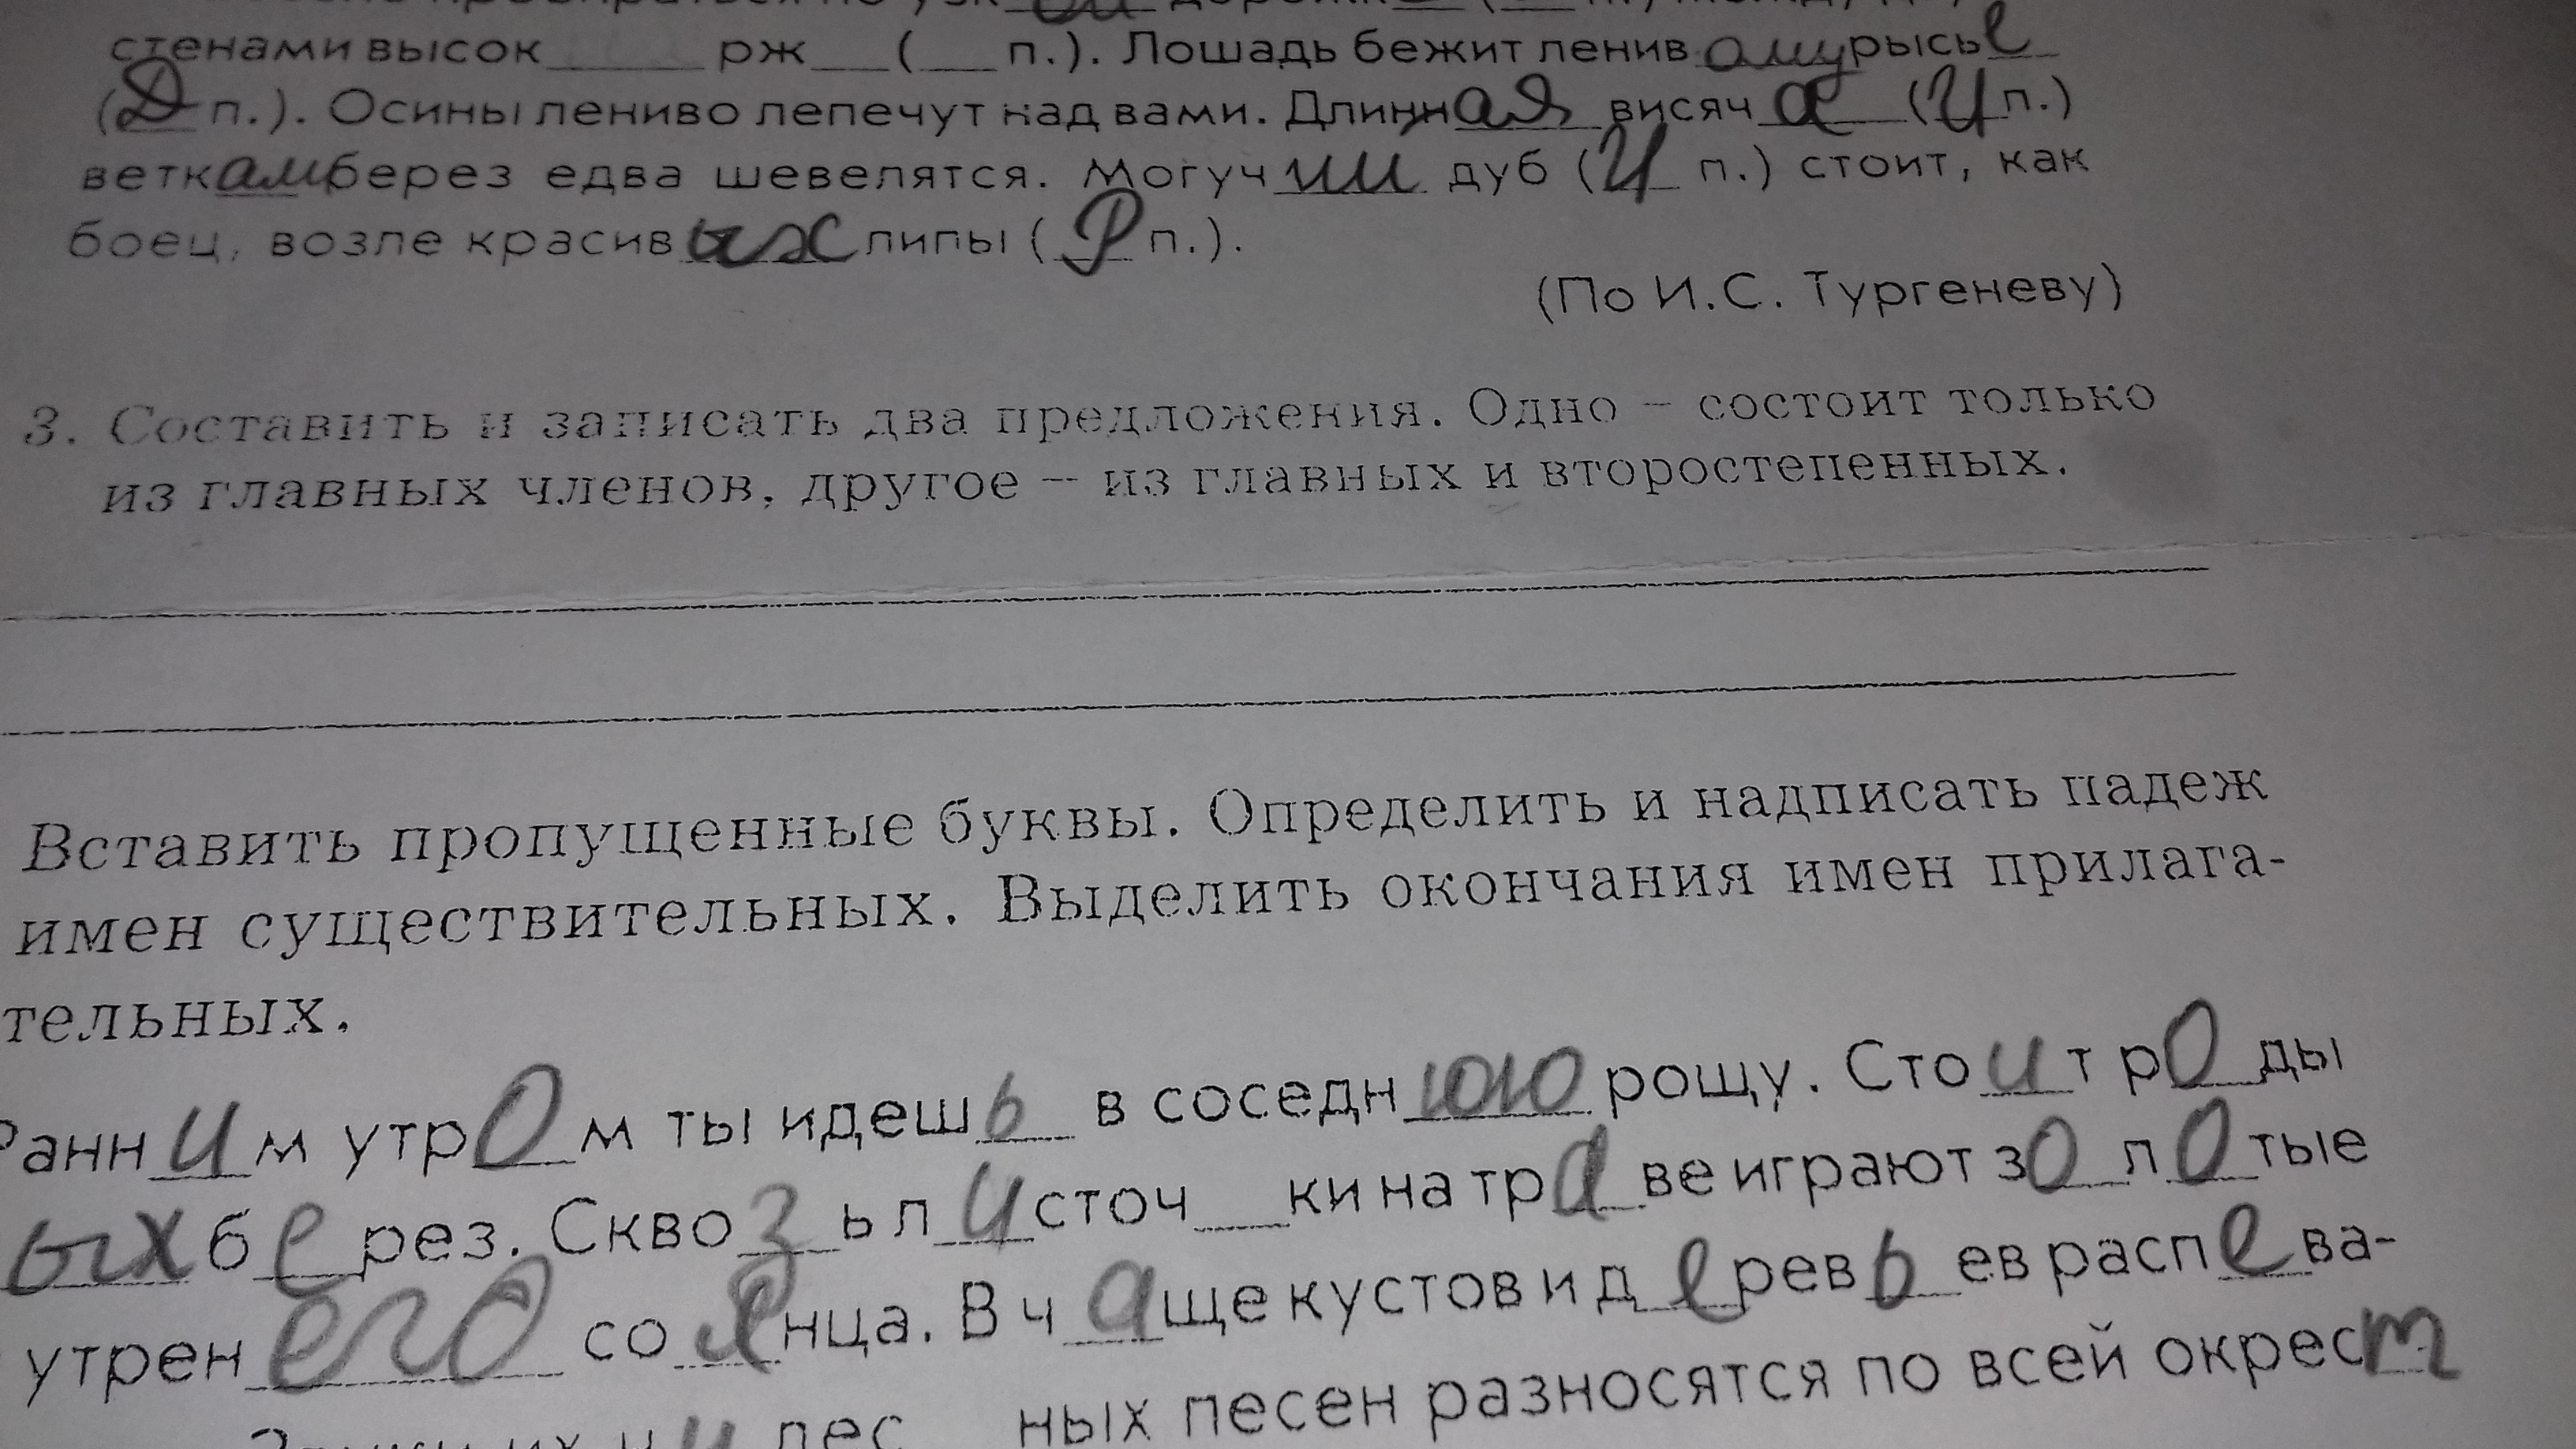 стенами высок_____ рж__(__ п.). Лошадь бежит ленив ому рысье
(Д п.). Осины лениво лепечут над вами. Длинная висяча (И п.)
веткам берез едва шевелятся. Могучии дуб (И п.) стоит, как
боец, возле красивых липы (Р п.).
(По И.С. Тургеневу)
3. Составить и записать два предложения. Одно – состоит только
из главных членов, другое – из главных и второстепенных.
Вставить пропущенные буквы. Определить и надписать падеж
имен существительных. Выделить окончания имен прилага-
тельных.
Ранним утром ты идешь в соседнюю рощу. Стоит роды
ых берез. Сквозь листоч__ки на траве играют золотые
утренего солнца. В чаще кустов и деревьев распева-
ных песен разносятся по всей окрест